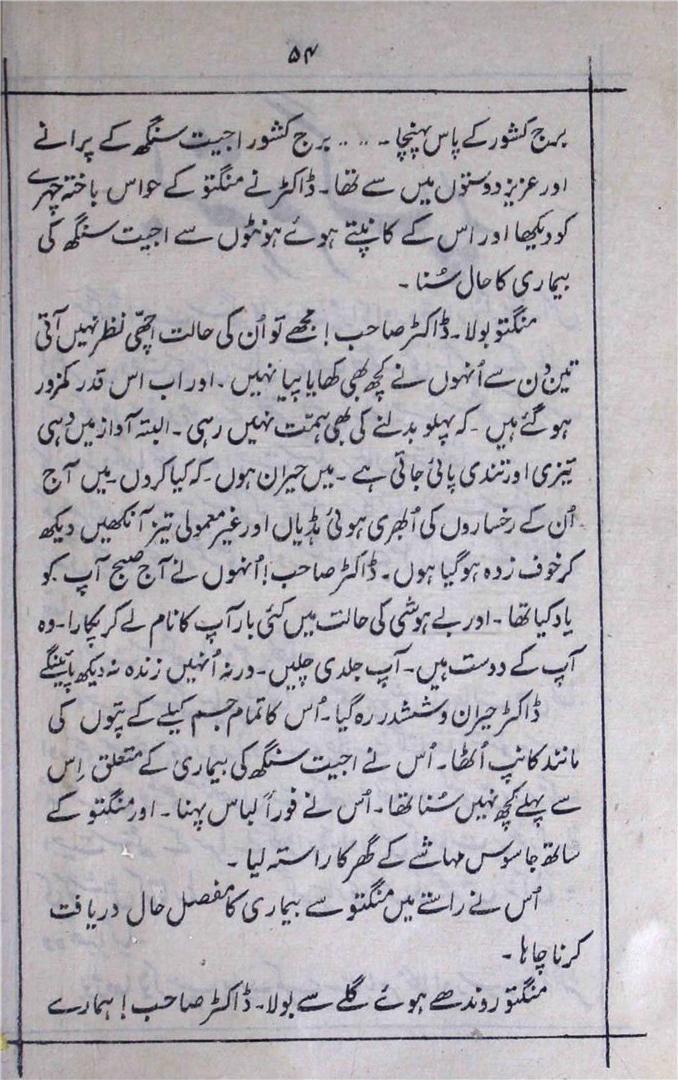 ۵۴
برج کشور کے پاس پہنچا ۔ .. .. برج کشور اجیت سنگھ کے پرانے
اور عزیز دوستوں میں سے تھا۔ ڈاکٹر نے منگتو کے حواس باختہ چہرے
کو دیکھا اور اس کے کانپتے ہوئے ہونٹوں سے اجیت سنگھ کی
بیماری کا حال سُنا ۔
منگتو بولا۔ ڈاکٹر صاحب! مجھے تو اُن کی حالت اچھّی نظر نہیں آتی
تین دن سے اُنہوں نے کچھ بھی کھایا پیا نہیں ۔ اور اب اس قدر کمزور
ہو گئے ہیں ۔ کہ پہلو بدلنے کی بھی ہمّت نہیں رہی ۔ البتہ آواز میں وہی
تیزی اور تندی پائی جاتی ہے ۔ میں حیران ہوں ۔ کہ کیا کروں ۔ میں آج
اُن کے رخساروں کی اُبھری ہوئی ہڈیاں اور غیر معمولی تیز آنکھیں دیکھ
کر خوف زدہ ہو گیا ہوں ۔ ڈاکٹر صاحب! اُنہوں نے آج صبح آپ کو
یاد کیا تھا ۔ اور بے ہوشی کی حالت میں کئی بار آپ کا نام لے کر پکارا ۔ وہ
آپ کے دوست ہیں ۔ آپ جلدی چلیں ۔ ورنہ اُنہیں زندہ نہ دیکھ پائینگے
ڈاکٹر حیران و ششدر رہ گیا ۔ اُس کا تمام جسم کیلے کے پتوں کی
مانند کانپ اُٹھا ۔ اُس نے اجیت سنگھ کی بیماری کے متعلق اِس
سے پہلے کچھ نہیں سُنا تھا ۔ اُس نے فوراً لباس پہنا ۔ اور منگتو کے
ساتھ جاسوس مہاشے کے گھر کا راستہ لیا ۔
اُس نے راستے میں منگتو سے بیماری کا مفصل حال دریافت
کرنا چاہا ۔
منگتو روندھے ہوئے گلے سے بولا ۔ ڈاکٹر صاحب! ہمارے